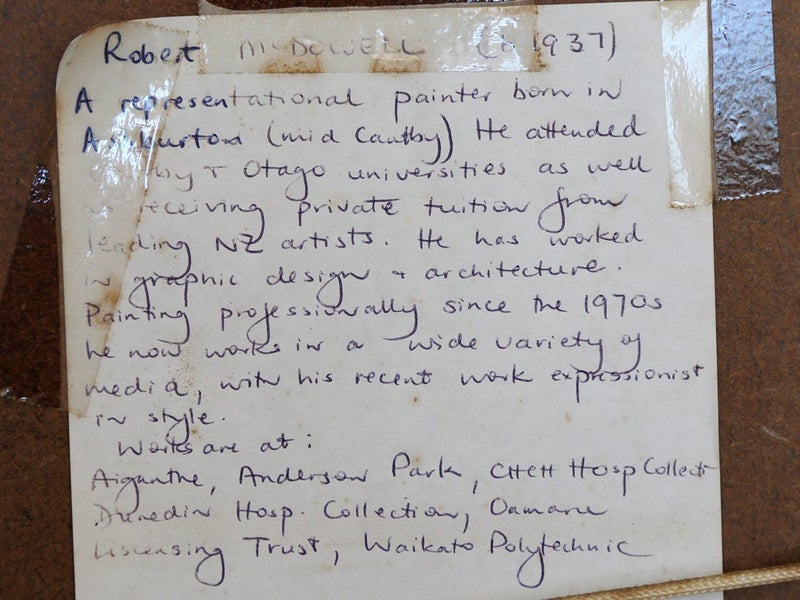 Robert McDOWELL (b 1937)
A representational painter born in
Ashburton (mid Cantby) He attended
+ Otago universities as well
receiving private tuition from
leading NZ artists. He has worked
in graphic design + architecture.
Painting professionally since the 1970s
he now works in a wide variety of
media, with his recent work expressionist
in style.
Works are at:
Aiganthe, Anderson Park, CHCH Hosp Collect
Dunedin Hosp. Collection, Oamaru
Liscensing Trust, Waikato Polytechnic